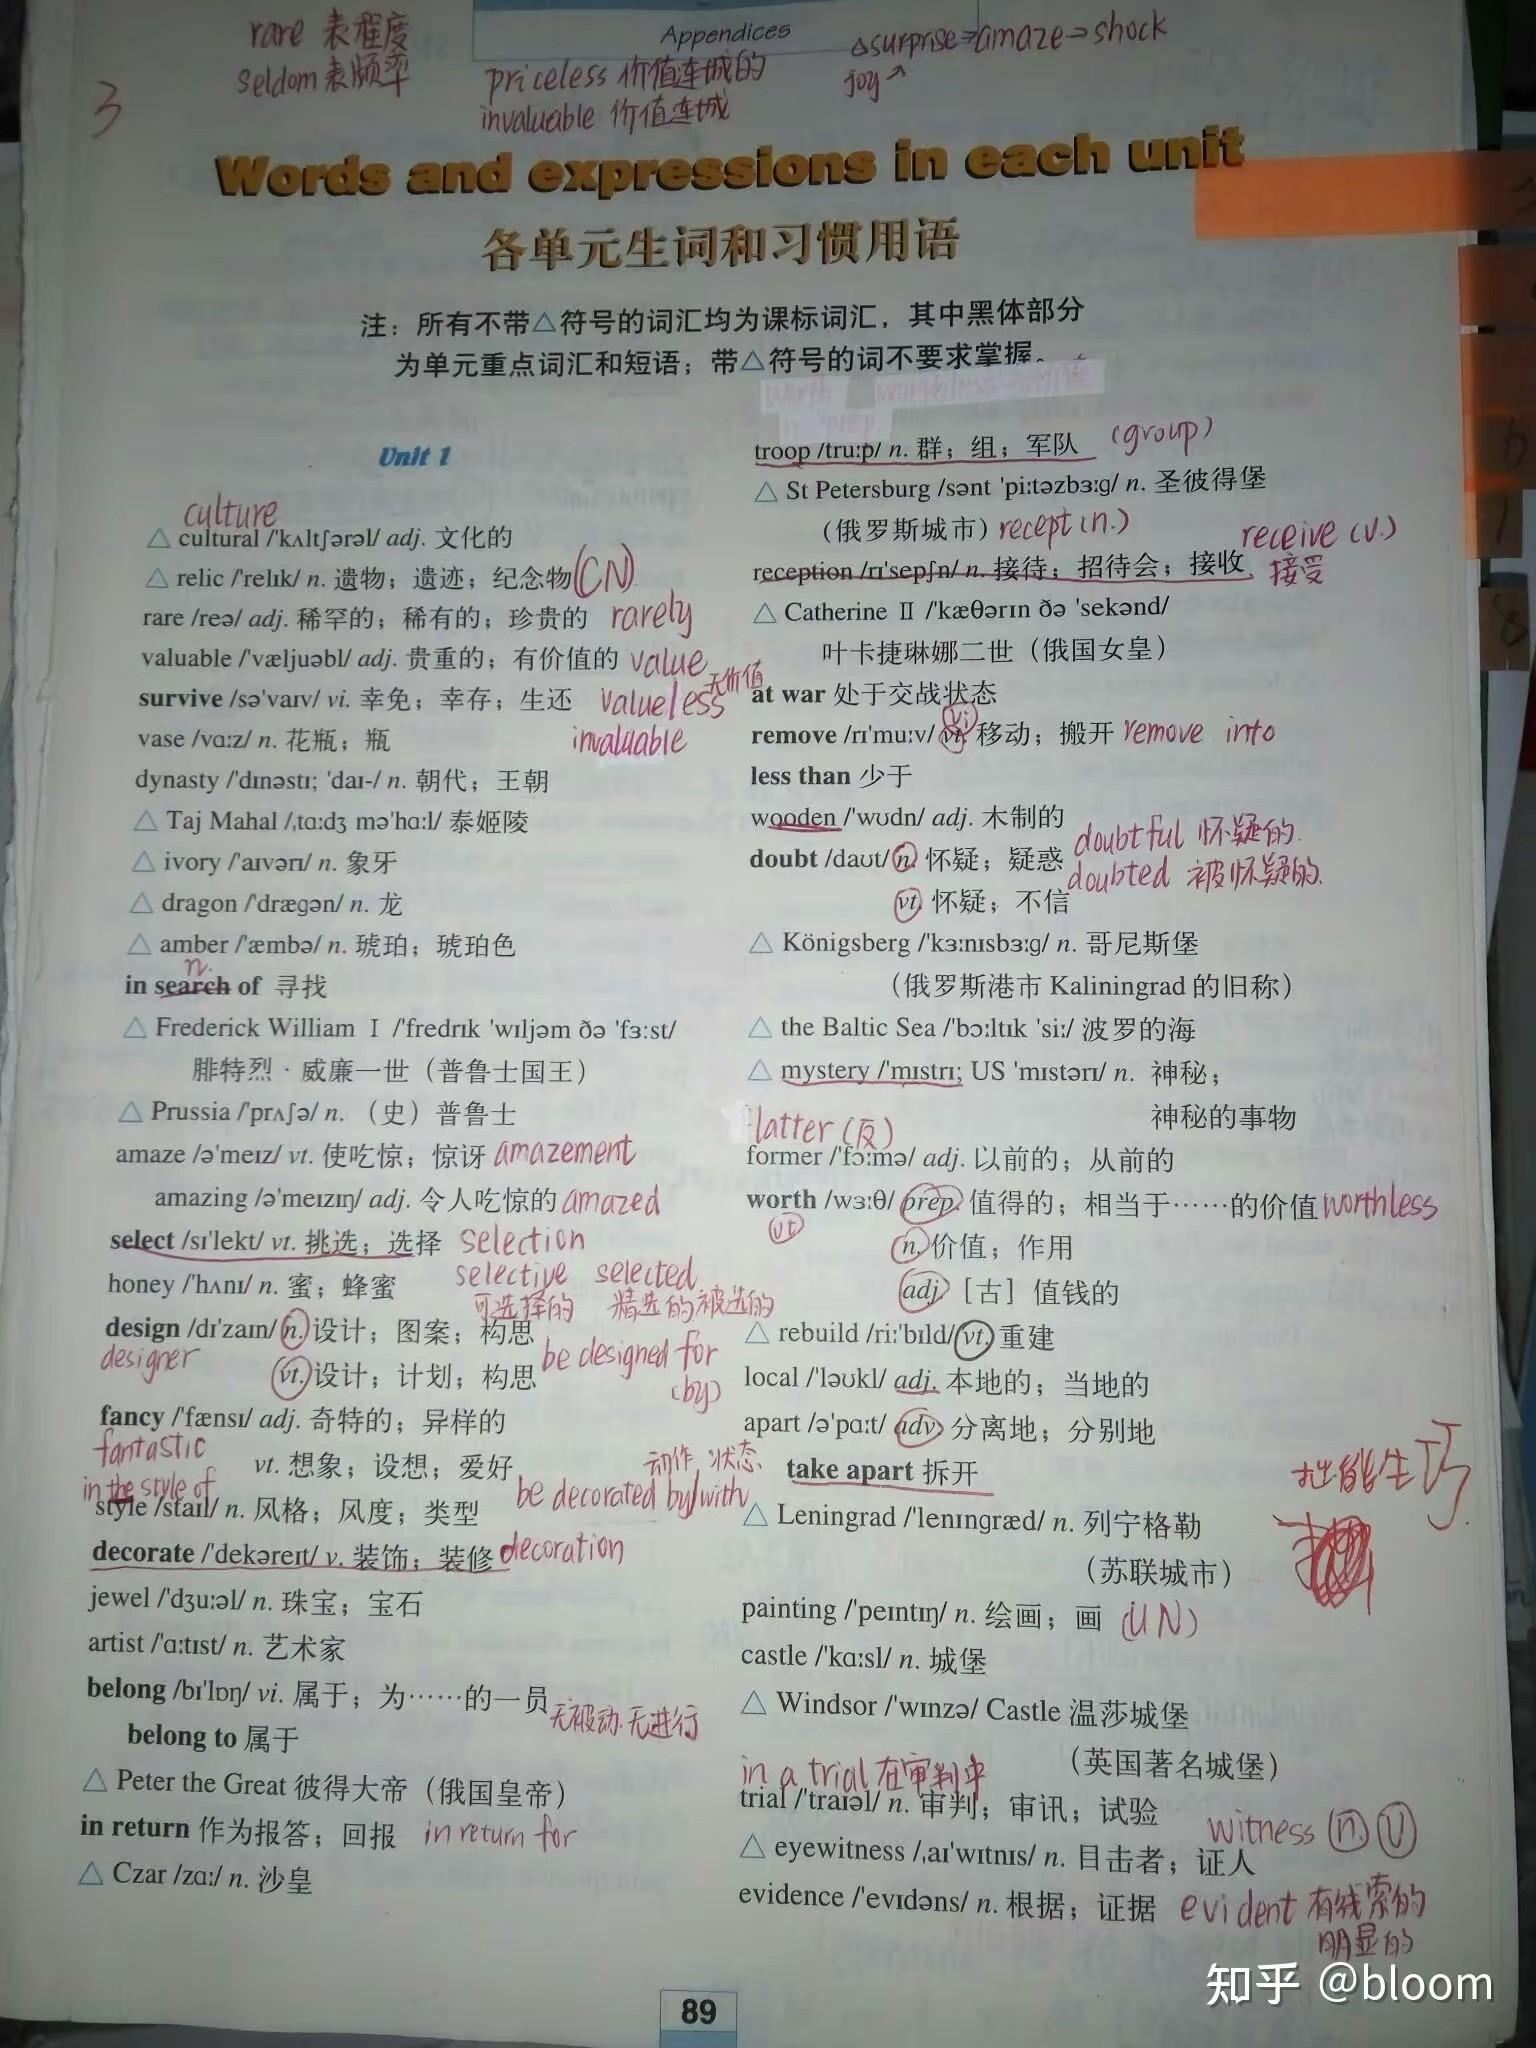 rare 表程度
seldom 表频率
3
Appendices
priceless 价值连城的
invaluable 价值连城
△surprise→amaze→shock
joy
Words and expressions in each unit
各单元生词和习惯用语
注：所有不带△符号的词汇均为课标词汇，其中黑体部分
为单元重点词汇和短语；带△符号的词不要求掌握。
Unit 1
culture
△ cultural /'kʌltʃərəl/ adj. 文化的
△ relic /'relɪk/ n. 遗物；遗迹；纪念物 (CN)
rare /reə/ adj. 稀罕的；稀有的；珍贵的 rarely
valuable /'væljuəbl/ adj. 贵重的；有价值的 value
survive /sə'vaɪv/ vi. 幸免；幸存；生还 valueless 无价值
vase /vɑːz/ n. 花瓶；瓶 invaluable
dynasty /'dɪnəstɪ; 'daɪ-/ n. 朝代；王朝
△ Taj Mahal /ˌtɑːdʒ mə'hɑːl/ 泰姬陵
△ ivory /'aɪvərɪ/ n. 象牙
△ dragon /'dræɡən/ n. 龙
△ amber /'æmbə/ n. 琥珀；琥珀色
n.
in search of 寻找
△ Frederick William Ⅰ /'fredrɪk 'wɪljəm ðə 'fɜːst/
腓特烈·威廉一世（普鲁士国王）
△ Prussia /'prʌʃə/ n. （史）普鲁士
amaze /ə'meɪz/ vt. 使吃惊；惊讶 amazement
amazing /ə'meɪzɪŋ/ adj. 令人吃惊的 amazed
select /sɪ'lekt/ vt. 挑选；选择 selection
honey /'hʌnɪ/ n. 蜜；蜂蜜 selective selected
可选择的 精选的 被选的
design /dɪ'zaɪn/ n. 设计；图案；构思
designer vt. 设计；计划；构思 be designed for
(by)
fancy /'fænsɪ/ adj. 奇特的；异样的
fantastic vt. 想象；设想；爱好 动作 状态
in the style of be decorated by/with
style /staɪl/ n. 风格；风度；类型
decorate /'dekəreɪt/ v. 装饰；装修 decoration
jewel /'dʒuːəl/ n. 珠宝；宝石
artist /'ɑːtɪst/ n. 艺术家
belong /bɪ'lɒŋ/ vi. 属于；为……的一员
无被动.无进行
belong to 属于
△ Peter the Great 彼得大帝（俄国皇帝）
in return 作为报答；回报 in return for
△ Czar /zɑː/ n. 沙皇
worth worthless
troop /truːp/ n. 群；组；军队 (group)
△ St Petersburg /sənt 'piːtəzbɜːɡ/ n. 圣彼得堡
（俄罗斯城市）recept (n.) receive (v.)
reception /rɪ'sepʃn/ n. 接待；招待会；接收 接受
△ Catherine Ⅱ /'kæθərɪn ðə 'sekənd/
叶卡捷琳娜二世（俄国女皇）
at war 处于交战状态
vi
remove /rɪ'muːv/ vt. 移动；搬开 remove into
less than 少于
wooden /'wʊdn/ adj. 木制的
doubtful 怀疑的.
doubt /daʊt/ n. 怀疑；疑惑
doubted 被怀疑的.
vt. 怀疑；不信
△ Königsberg /'kɜːnɪsbɜːɡ/ n. 哥尼斯堡
（俄罗斯港市 Kaliningrad 的旧称）
△ the Baltic Sea /'bɔːltɪk 'siː/ 波罗的海
△ mystery /'mɪstrɪ; US 'mɪstərɪ/ n. 神秘；
神秘的事物
latter (反)
former /'fɔːmə/ adj. 以前的；从前的
worth /wɜːθ/ prep. 值得的；相当于……的价值 worthless
vt n. 价值；作用
adj. ［古］值钱的
△ rebuild /riː'bɪld/ vt. 重建
local /'ləʊkl/ adj. 本地的；当地的
apart /ə'pɑːt/ adv. 分离地；分别地
take apart 拆开
生巧
△ Leningrad /'lenɪnɡræd/ n. 列宁格勒
（苏联城市）
painting /'peɪntɪŋ/ n. 绘画；画 (UN)
castle /'kɑːsl/ n. 城堡
△ Windsor /'wɪnzə/ Castle 温莎城堡
（英国著名城堡）
in a trial 在审判中
trial /'traɪəl/ n. 审判；审讯；试验
witness n. v
△ eyewitness /ˌaɪ'wɪtnɪs/ n. 目击者；证人
evidence /'evɪdəns/ n. 根据；证据 evident 有线索的
明显的
89
知乎 @bloom